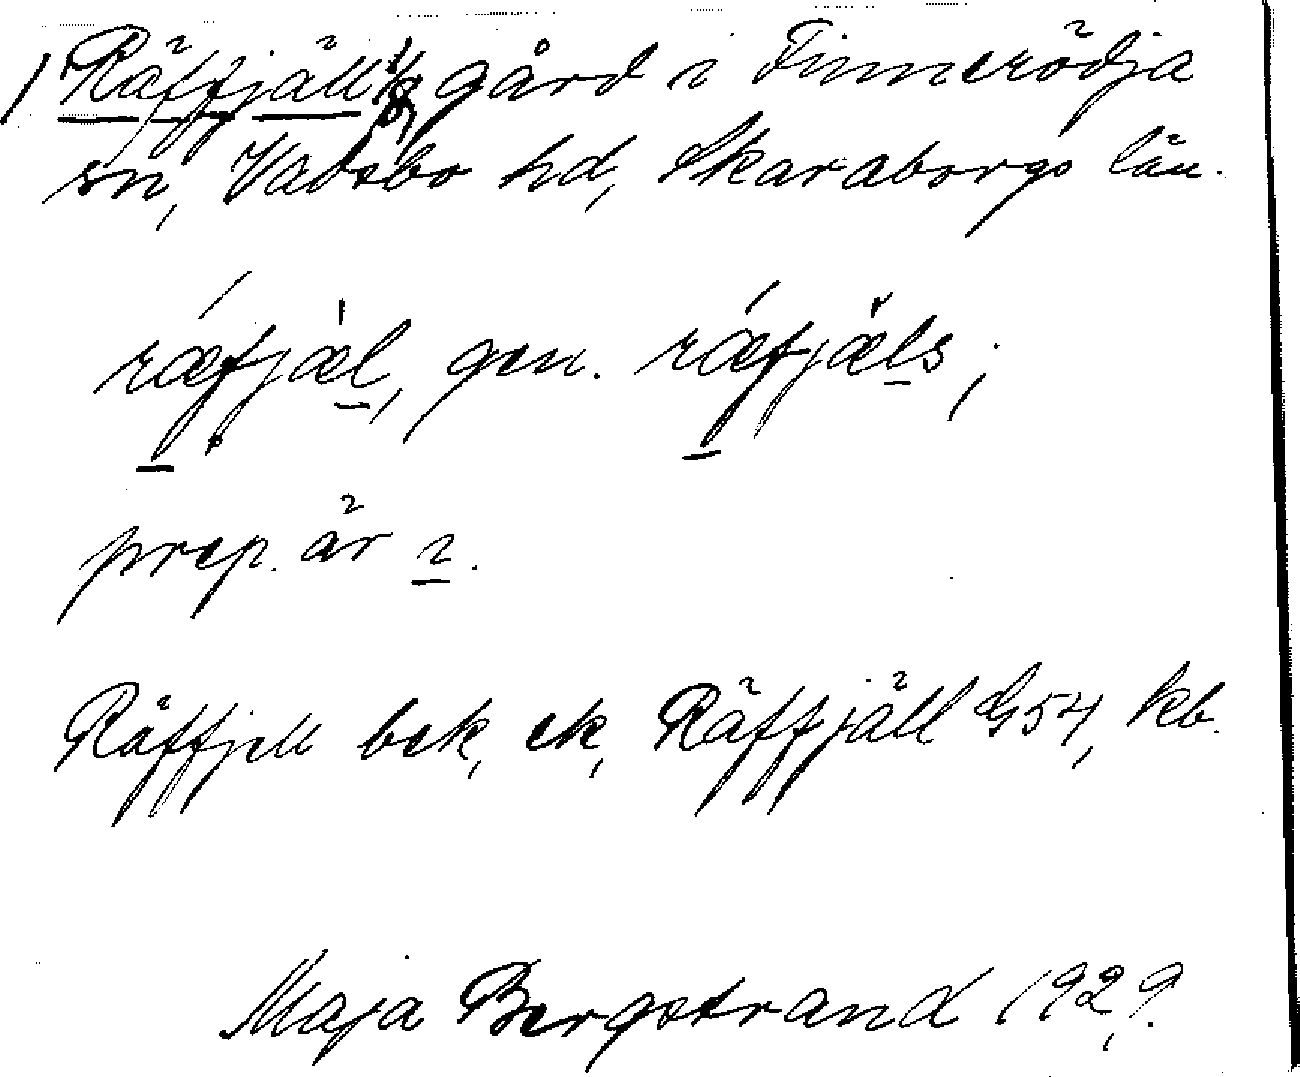 1 Räffjäll gård i Finnerödja
sn, Vadsbo hd, Skaraborgs län.
ræfjæl, gen. ræfjæls;
prep. är i.
Räffjell bek, ek, Räffjäll G54, kb.
Maja Bergstrand 1929.